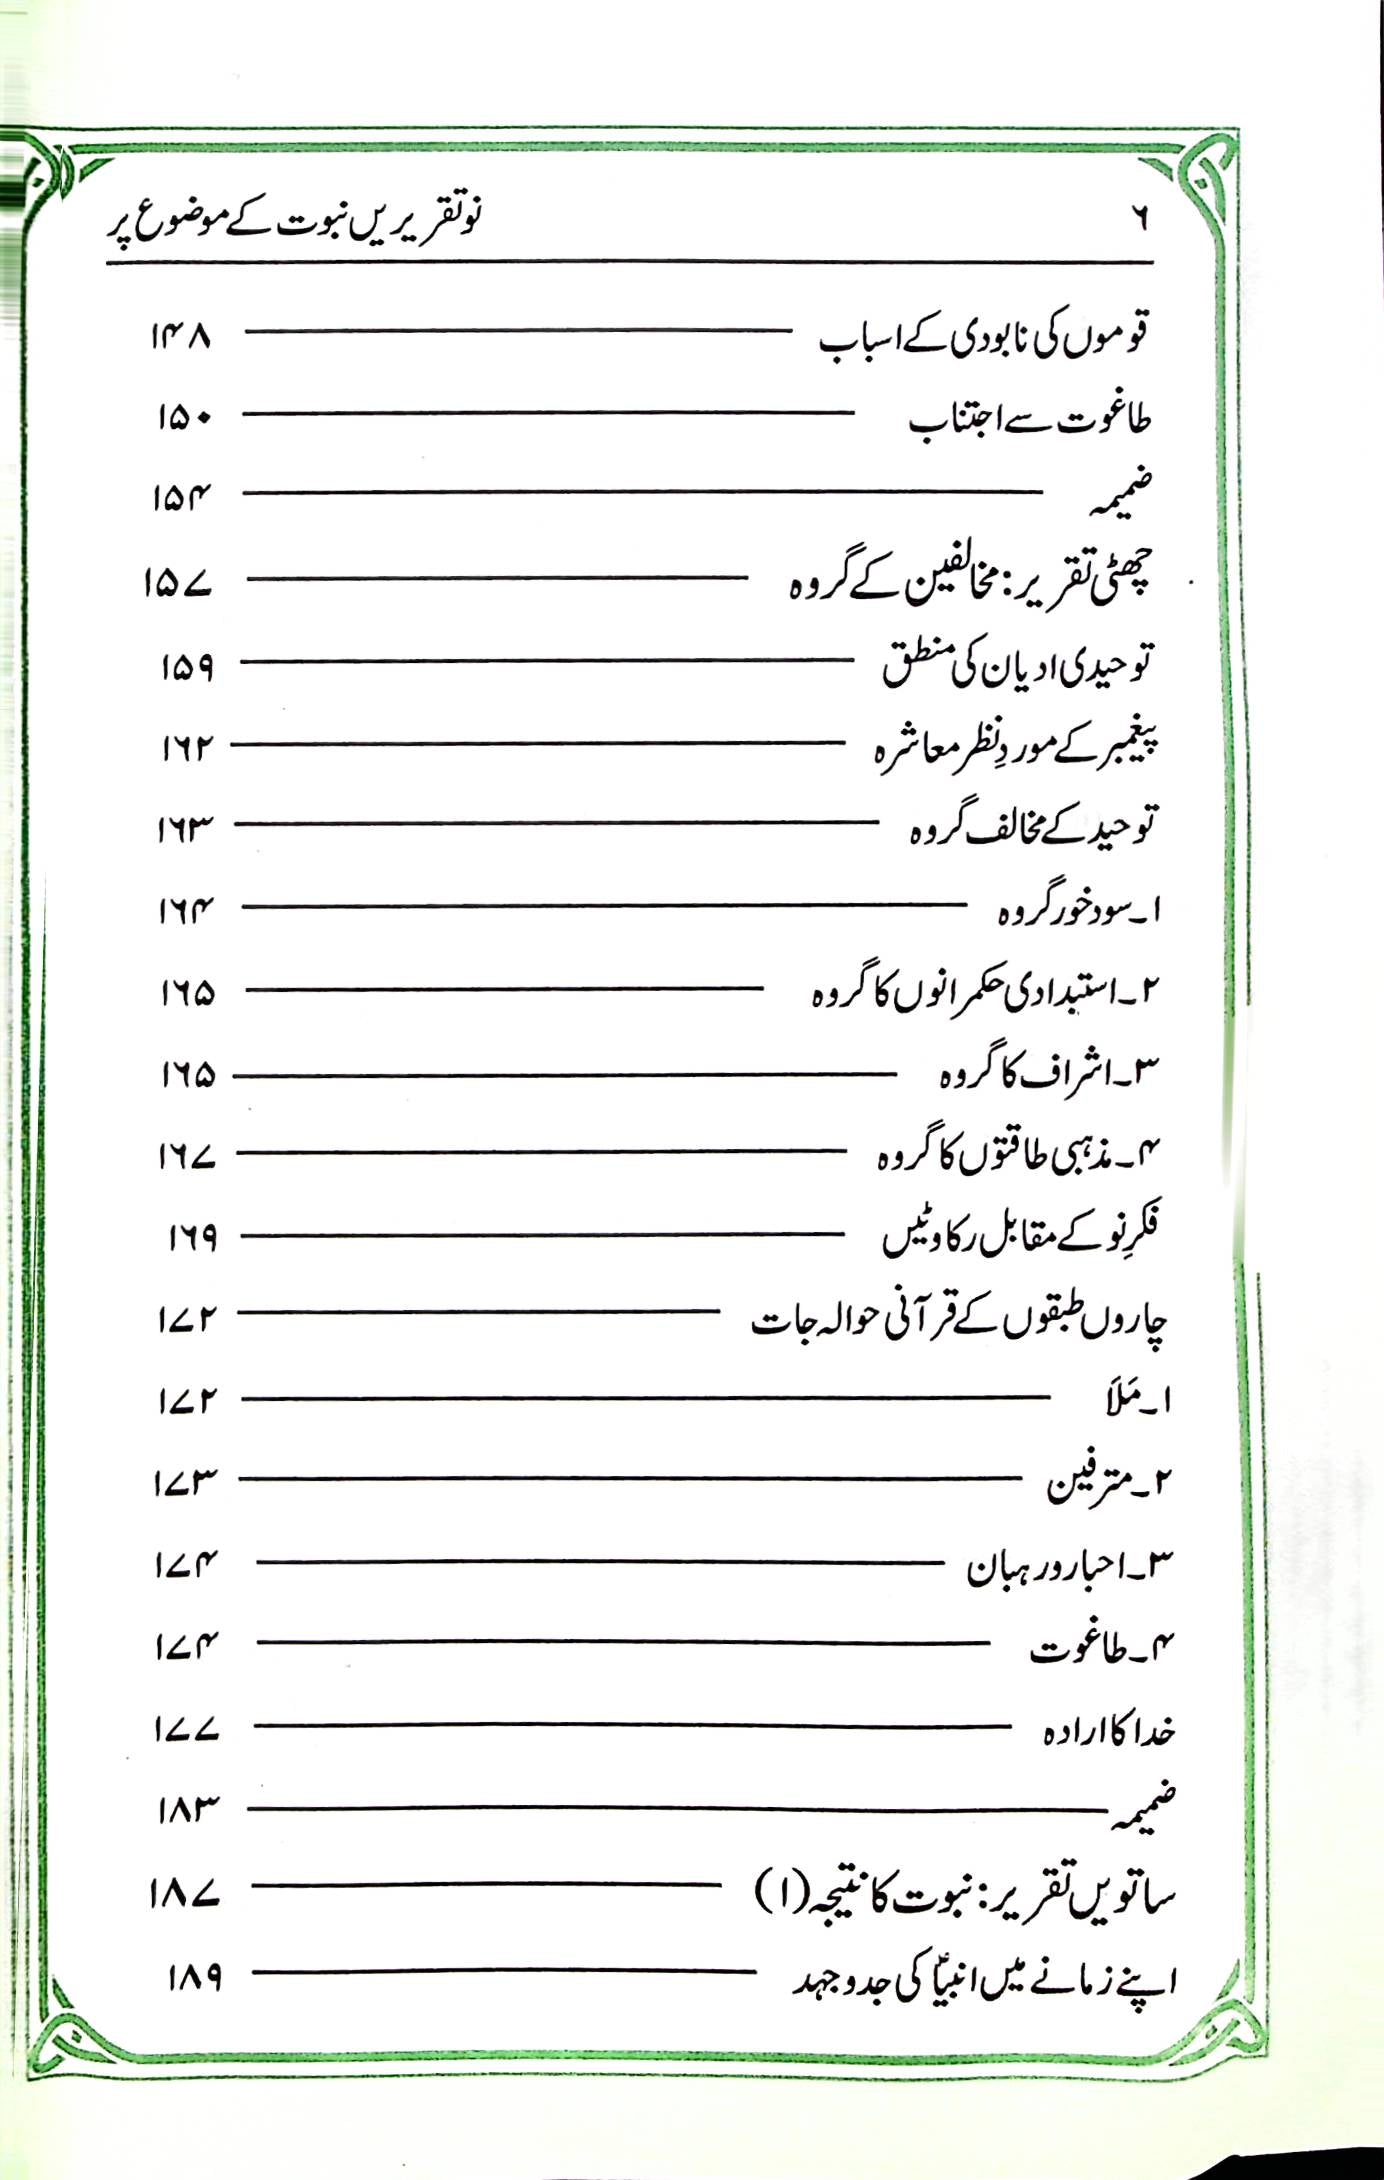 ۶ نو تقریریں نبوت کے موضوع پر
قوموں کی نابودی کے اسباب ۱۴۸
طاغوت سے اجتناب ۱۵۰
ضمیمہ ۱۵۴
چھٹی تقریر: مخالفین کے گروہ ۱۵۷
توحیدی ادیان کی منطق ۱۵۹
پیغمبر کے موردِ نظر معاشرہ ۱۶۲
توحید کے مخالف گروہ ۱۶۳
۱۔ سود خور گروہ ۱۶۴
۲۔ استبدادی حکمرانوں کا گروہ ۱۶۵
۳۔ اشراف کا گروہ ۱۶۵
۴۔ مذہبی طاقتوں کا گروہ ۱۶۷
فکرِ نو کے مقابل رکاوٹیں ۱۶۹
چاروں طبقوں کے قرآنی حوالہ جات ۱۷۲
۱۔ مَلَأ ۱۷۲
۲۔ مترفین ۱۷۳
۳۔ احبار و رہبان ۱۷۴
۴۔ طاغوت ۱۷۴
خدا کا ارادہ ۱۷۷
ضمیمہ ۱۸۳
ساتویں تقریر: نبوت کا نتیجہ (۱) ۱۸۷
اپنے زمانے میں انبیاؑ کی جدوجہد ۱۸۹